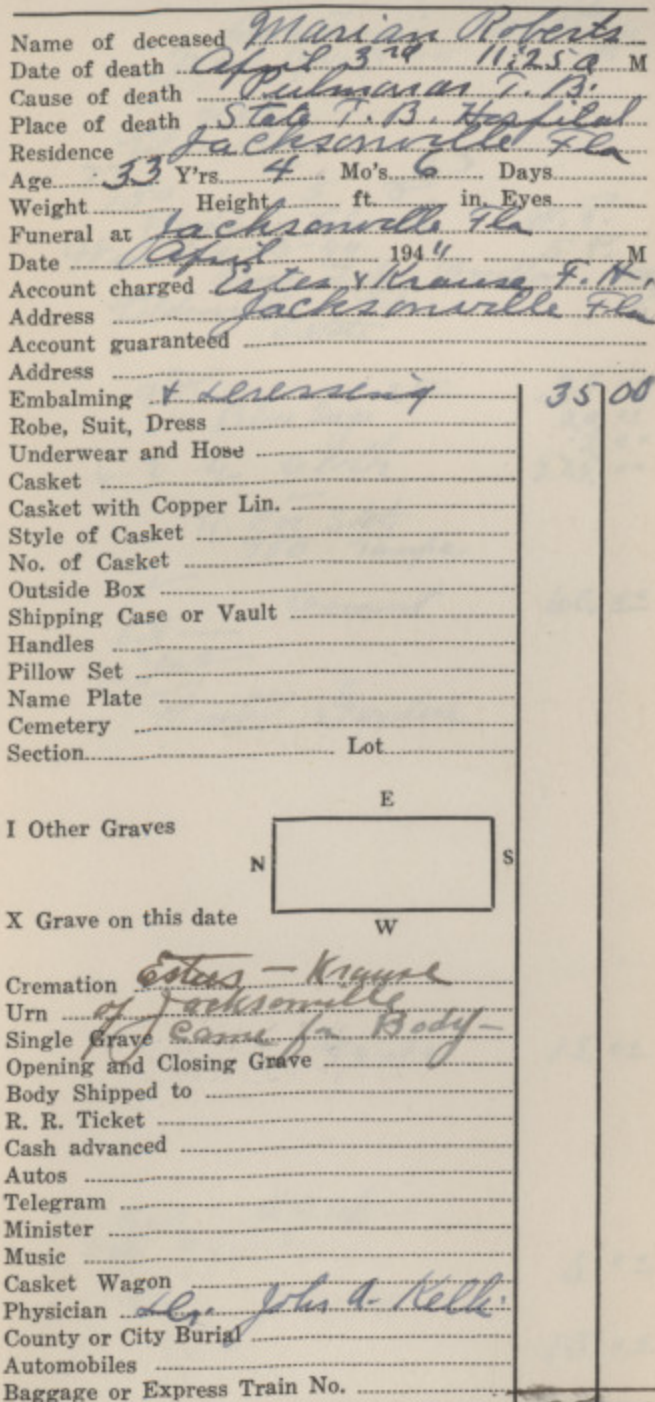 Name of deceased Marian Roberts
Date of death April 3rd 11:25 a M
Cause of death Pulmonary T. B.
Place of death State T. B. Hospital
Residence Jacksonville Fla
Age 33 Y'rs. 4 Mo's 6 Days
Weight Height ft. in. Eyes
Funeral at Jacksonville Fla
Date April 194 M
Account charged Estes & Krause F. H.
Address Jacksonville Fla
Account guaranteed
Address
Embalming & Dressing 35 00
Robe, Suit, Dress
Underwear and Hose
Casket
Casket with Copper Lin.
Style of Casket
No. of Casket
Outside Box
Shipping Case or Vault
Handles
Pillow Set
Name Plate
Cemetery
Section Lot
E
I Other Graves
N S
X Grave on this date
W
Cremation Estes - Krause
Urn of Jacksonville
Single Grave came for Body -
Opening and Closing Grave
Body Shipped to
R. R. Ticket
Cash advanced
Autos
Telegram
Minister
Music
Casket Wagon
Physician Dr. John A. Kelli
County or City Burial
Automobiles
Baggage or Express Train No.